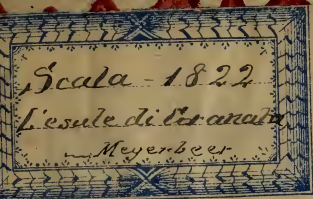 Scala - 1822
L'esule di Granata
Meyerbeer